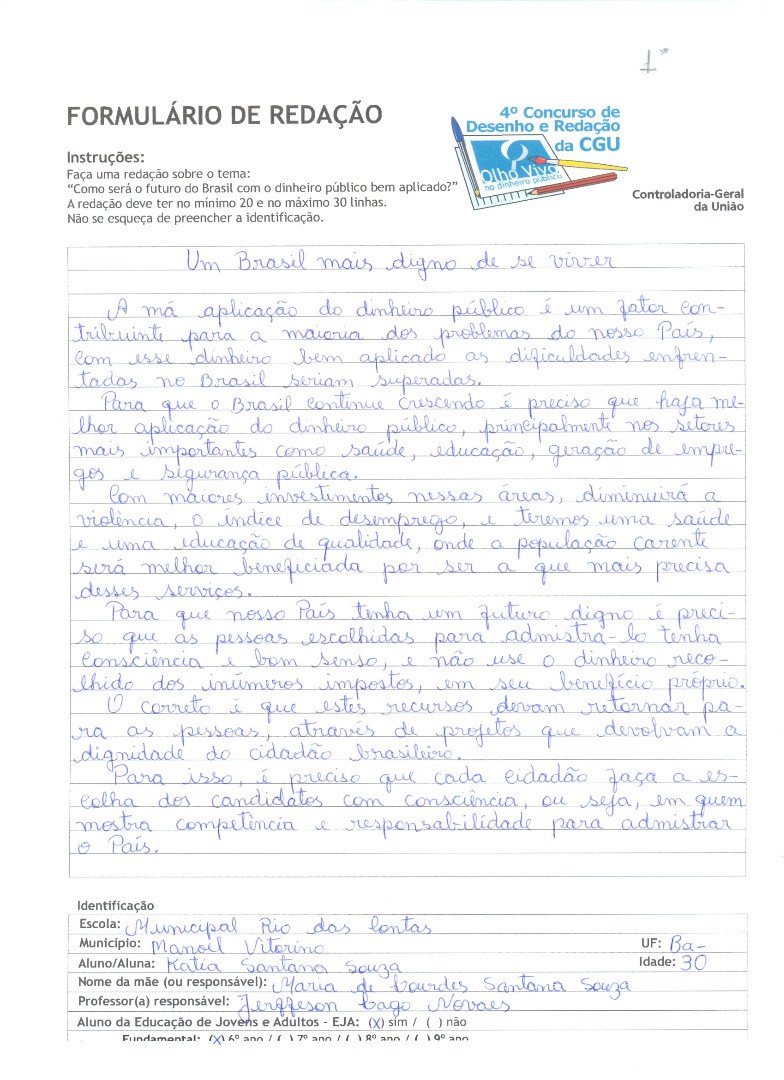 1º
FORMULÁRIO DE REDAÇÃO
4º Concurso de
Desenho e Redação
da CGU
Olho Vivo
no dinheiro público
Controladoria-Geral
da União
Instruções:
Faça uma redação sobre o tema:
“Como será o futuro do Brasil com o dinheiro público bem aplicado?”
A redação deve ter no mínimo 20 e no máximo 30 linhas.
Não se esqueça de preencher a identificação.
Um Brasil mais digno de se viver
A má aplicação do dinheiro público é um fator con-
tribuinte para a maioria dos problemas do nosso País,
com esse dinheiro bem aplicado as dificuldades enfren-
tadas no Brasil seriam superadas.
Para que o Brasil continue crescendo é preciso que haja me-
lhor aplicação do dinheiro público, principalmente nos setores
mais importantes como saúde, educação, geração de empre-
gos e segurança pública.
Com maiores investimentos nessas áreas, diminuirá a
violência, o índice de desemprego, e teremos uma saúde
e uma educação de qualidade, onde a população carente
será melhor beneficiada por ser a que mais precisa
desses serviços.
Para que nosso País tenha um futuro digno é preci-
so que as pessoas escolhidas para admistra-lo tenha
consciência e bom senso, e não use o dinheiro reco-
lhido dos inúmeros impostos, em seu benefício próprio.
O correto é que estes recursos devam retornar pa-
ra as pessoas, através de projetos que devolvam a
dignidade do cidadão brasileiro.
Para isso, é preciso que cada cidadão faça a es-
colha dos candidatos com consciência, ou seja, em quem
mostra competência e responsabilidade para admistrar
o País.
Identificação
Escola: Municipal Rio das Contas
Município: Manoel Vitorino UF: Ba-
Aluno/Aluna: Katia Santana Souza Idade: 30
Nome da mãe (ou responsável): Maria de Lourdes Santana Souza
Professor(a) responsável: Jerffeson Lago Novaes
Aluno da Educação de Jovens e Adultos - EJA: (X) sim / ( ) não
Fundamental: (X) 6º ano / ( ) 7º ano / ( ) 8º ano / ( ) 9º ano